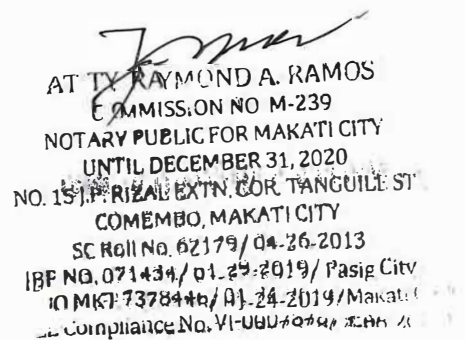 AT TY RAYMOND A. RAMOS
COMMISSION NO M-239
NOTARY PUBLIC FOR MAKATI CITY
UNTIL DECEMBER 31, 2020
NO. 15 J.P. RIZAL EXTN. COR. TANGUILE ST
COMEMBO, MAKATI CITY
SC Roll No. 62179/ 04-26-2013
IBP NO. 071434/ 01-29-2019/ Pasig City
MKT 7378446/ 01-24-2019/Makati
Compliance No. VI-